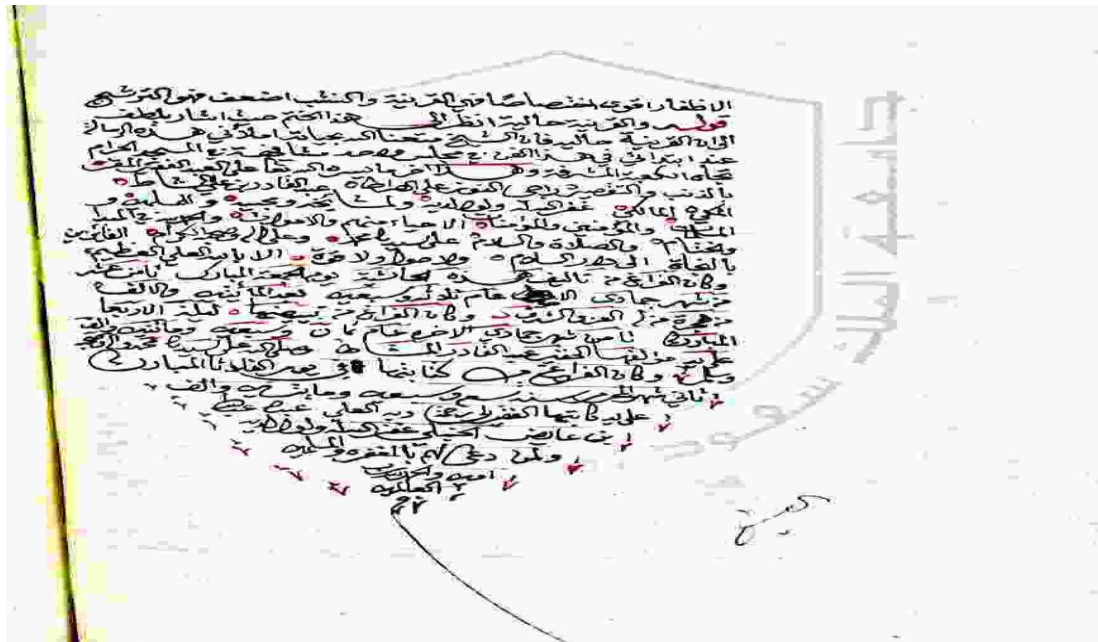 الاظفار اقوى اختصاصا فهي القرينة والنشب اضعف فهو الترشيح
قوله والقرينة حالية انظر الى هذا الختم حيث اشار بلطف
الى ان القرينة حالية فان الشيخ متعنا الله بحياته املا في هذه الرسالة
عند ابتدائي في هذا الفن مع المسجد الحرام
تجاه الكعبة المشرفة وهذا اخر ما يسره الله تعالى على العبد الفقير المقر
بالذنب والتقصير راجي العفو عبد القادر بن علي المشاط
المكي المالكي غفر الله له ولوالديه ولمشايخه ومحبيه والمسلمين و
المسلمات والمؤمنين والمؤمنات الاحياء منهم والاموات
والصلاة والسلام على سيدنا محمد وعلى اله وصحبه الكرام الفائزين
بالنجاة الى دار السلام ولا حول ولا قوة الا بالله العلي العظيم
وكان الفراغ من تاليف هذه الحاشية يوم الجمعة المبارك ثامن عشر
من شهر جمادى عام ثلاث وسبعين بعد المأتين والالف
من هجرة من له العز والشرف وكان الفراغ من تبييضها ليلة الاربعا
المبارك ثامن شهر جمادى الاخر عام ثمان وسبعين ومائتين والف
على يد مؤلفها الفقير عبد القادر المشاط وصلى الله على سيدنا محمد واله وصحبه
وسلم وكان الفراغ من كتابتها في يوم الثلاثا المبارك
ثاني شهر سنة تسع وسبعين ومائتين والف
على يد كاتبها الفقير الى ربه العلي
بن عايض الحنبلي غفر الله له ولوالديه
ولمن دعى لهم بالمغفرة والمسلمين
امين والحمد لله رب
العالمين
جامعة الملك سعود